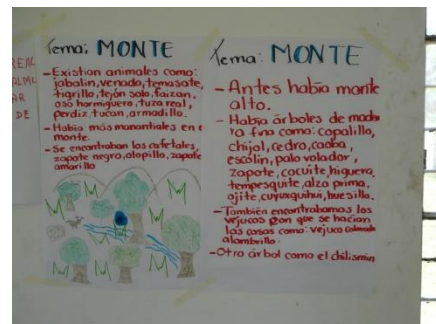 REN
ALMU
AR
DE
Tema: MONTE
- Existian animales como:
jabalin, venado, temasate,
tigrillo, tejón solo, faizan,
oso hormiguero, tuza real,
perdiz, tucan, armadillo.
- Habia más manantiales en e
monte.
- Se encontraban los cafetales,
zapote negro, alopillo, zapote
amarillo
Tema: MONTE
- Antes habia monte
alto.
- Habia árboles de made
ra fina como: copalillo,
chijal, cedro, caoba,
escolin, palo volador,
zapote, cocuite, higuera,
tempesquite, alzaprima,
ojite, cuyuxquihui, huesillo.
- También encontrabamos los
vejucos con que se hacian
las casas como: vejuco colorado
alambrillo.
- Otro árbol como el chilismin